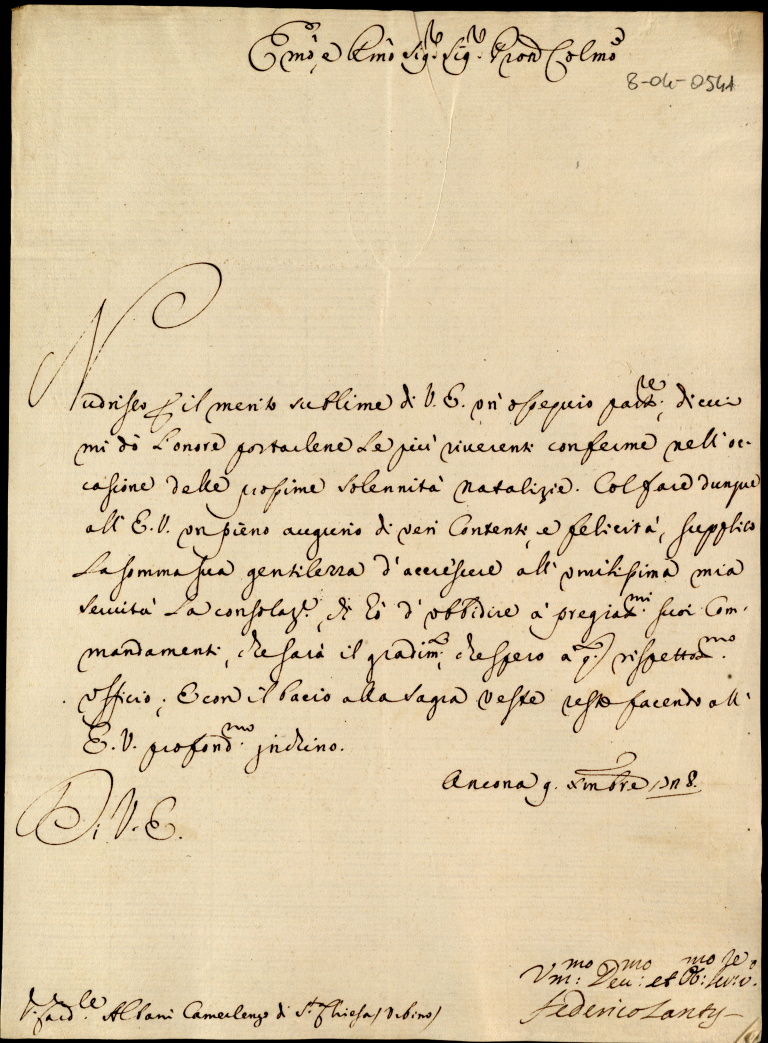 Emo, e Rmo Sigr. Sigr. Pron Colmo
8-04-0541
Nudrisco per il merito sublime di V. E. un' ossequio partre., di cui
mi dò l'onore portarlene le più riverenti conferme nell' oc-
casione delle prossime solennità natalizie. Col fare dunque
all' E. V. un pieno augurio di veri contenti, e felicità, supplico
la somma sua gentilezza d' accrescere all' umilissima mia
servità la consolaze., di d' ubbidire a' pregiatmi. suoi Com-
mandamenti, che sarà il gradimto., che spero a qto. rispettosmo.
ufficio; E con il bacio alla sagra veste resto facendo all'
E. V. profondmo. inchino.
Ancona 9. Xmbre 1718.
Di V. E.
Vmmo: Devmo: et Obmo: Servre.
Federico Lanty
Albani Camerlengo di Sta. Chiesa (Urbino)